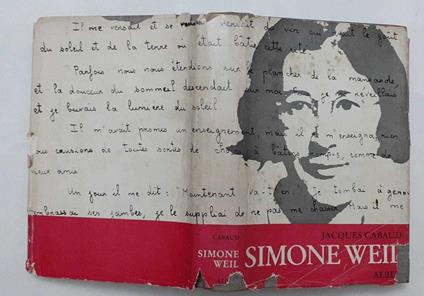 Il me versait et se versait du vin qui avait le goût
du soleil et de la terre où était bâtie cette cité.
Parfois nous nous étendions sur le plancher de la mansarde,
et la douceur du sommeil descendait sur moi. je me réveillais
et je buvais la lumière du soleil.
Il m'avait promis un enseignement, mais il ne m'enseigna rien
Nous causions de toutes sortes de choses à bâtons rompus, comme de
vieux amis.
Un jour il me dit: "Maintenant va-t'en". Je tombai à genou
embrassai ses jambes, je le suppliai de ne pas me chasser. Mais il me
CABAUD
SIMONE
WEIL
JACQUES CABAUD
SIMONE WEIL